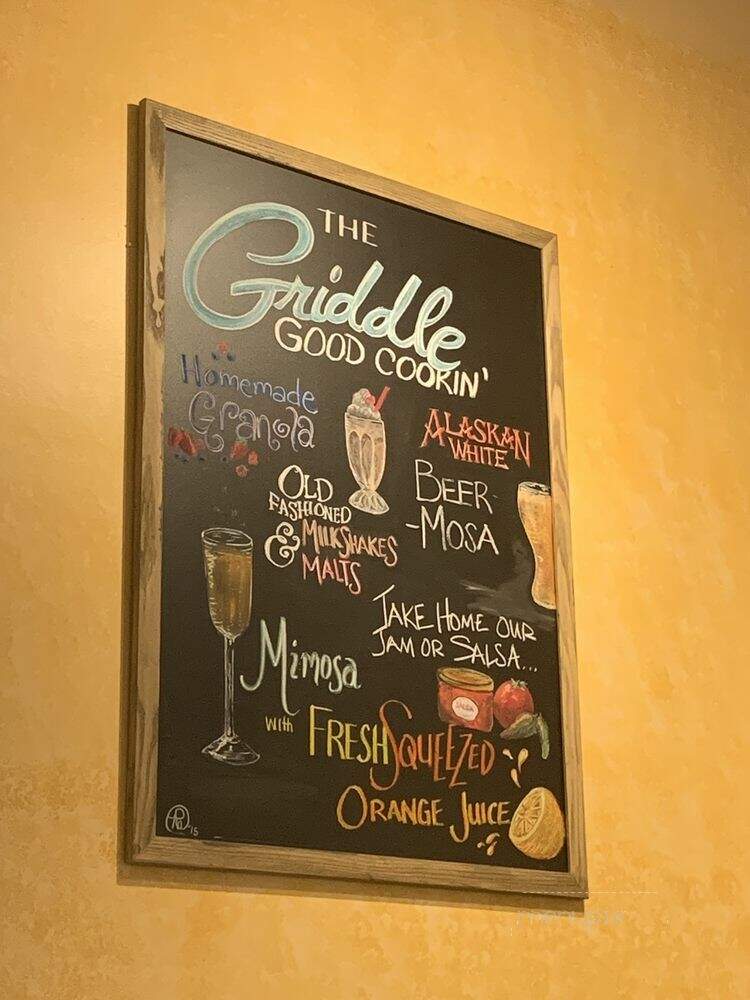 THE
Griddle
GOOD COOKIN'
Homemade
Granola
ALASKAN
WHITE
BEER-
-MOSA
OLD
FASHIONED
& MILKSHAKES
MALTS
TAKE HOME OUR
JAM OR SALSA...
SALSA
Mimosa
with FRESH SQUEEZED
ORANGE JUICE
'15